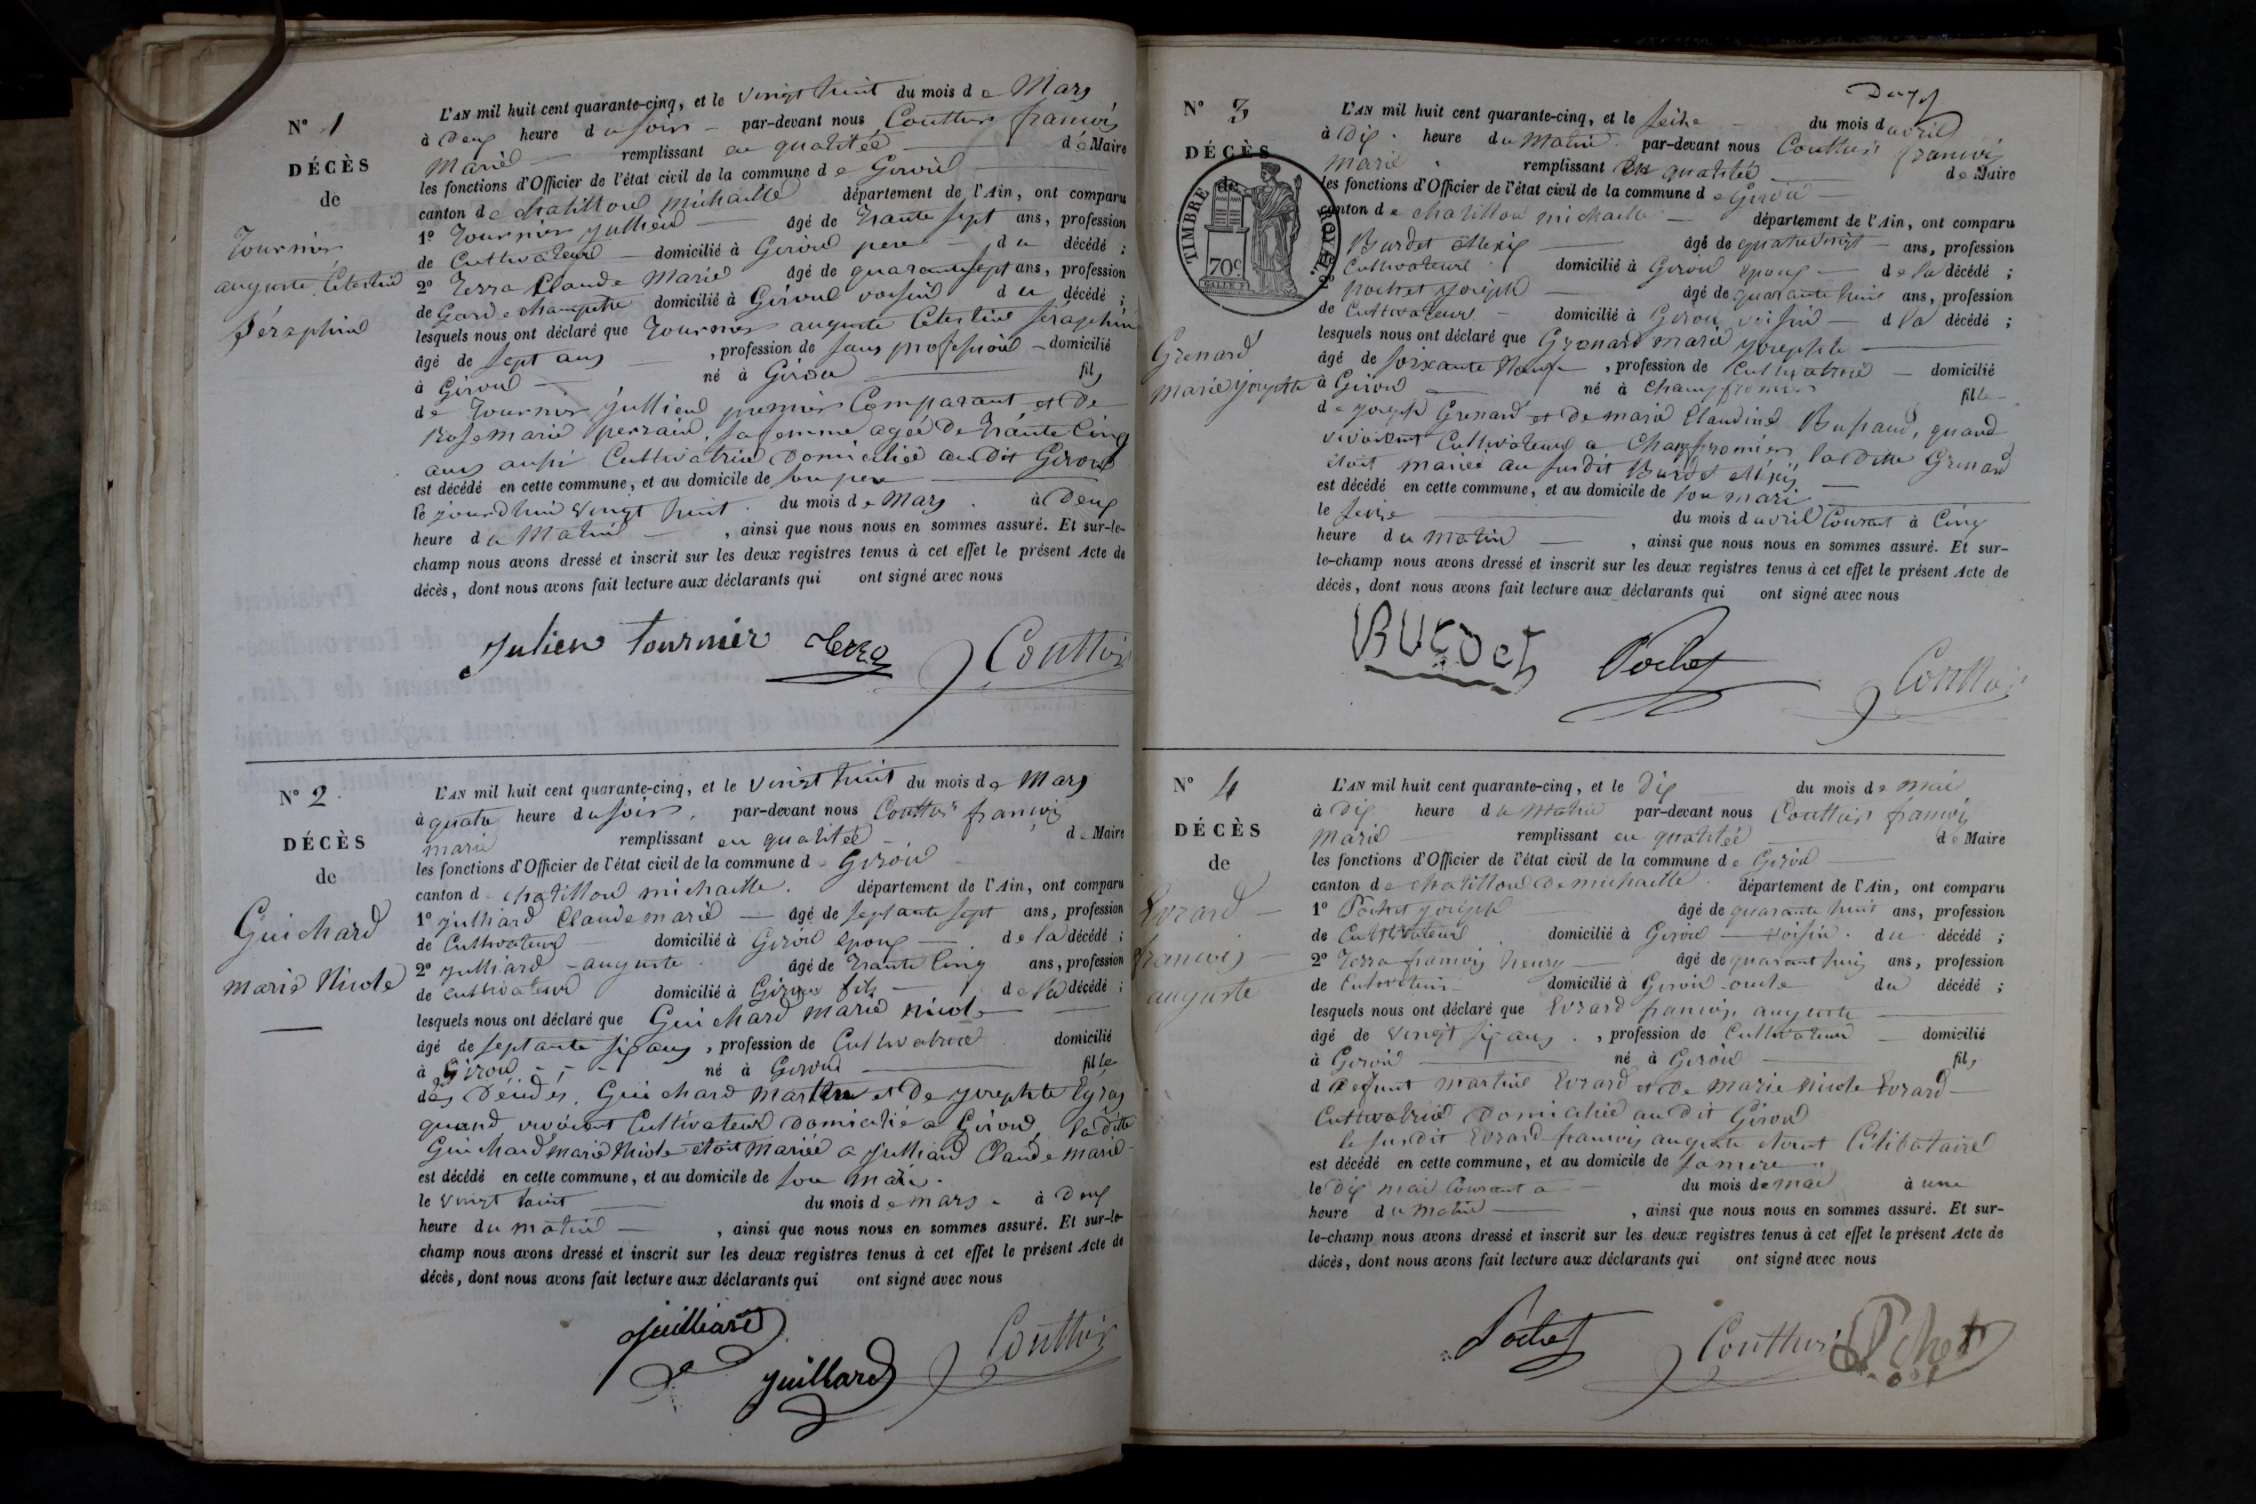 N° 1
DÉCÈS
de
Tournier
auguste Célestin
Séraphin
L'AN mil huit cent quarante-cinq, et le vingt huit du mois de Mars
à Deux heure du soir par-devant nous Coutturi françois
Marie remplissant en qualitée de Maire
les fonctions d'Officier de l'état civil de la commune de Giroud
canton de chatillond michaille département de l'Ain, ont comparu
1° Tournier jullien âgé de trante sept ans, profession
de Cultivateur domicilié à Giroud pere du décédé ;
2° Terra Claude Marie âgé de quarante sept ans, profession
de Garde champetre domicilié à Giroud voisin du décédé ;
lesquels nous ont déclaré que Tournier auguste Célestin Séraphin
âgé de sept ans , profession de sans profession domicilié
à Giroud né à Giroud fils
de Tournier jullien premier Comparant et De
Rose marie perraud, sa femme agée De trante Cinq
ans aussi Cultivatrice Domiciliée au dit Giroud
est décédé en cette commune, et au domicile de son pere
le jourdhui vingt huit du mois de Mars à Deux
heure du Matin , ainsi que nous nous en sommes assuré. Et sur-le-
champ nous avons dressé et inscrit sur les deux registres tenus à cet effet le présent Acte de
décès, dont nous avons fait lecture aux déclarants qui ont signé avec nous
Julien tournier Terra Coutturi
N° 2
DÉCÈS
de
Guichard
marie Nicole
L'AN mil huit cent quarante-cinq, et le vingt huit du mois de Mars
à quatre heure du soir, par-devant nous Coutturi françois
marie remplissant en qualitée de Maire
les fonctions d'Officier de l'état civil de la commune de Giroud
canton de chatillond michaille. département de l'Ain, ont comparu
1° julliard Claude marie âgé de septante sept ans, profession
de Cultivateur domicilié à Giroud epoux de la décédé ;
2° julliard auguste âgé de trante Cinq ans, profession
de cultivateur domicilié à Giroud fils de la décédé ;
lesquels nous ont déclaré que Guichard marie nicole
âgé de septante six ans , profession de Cultivatrice domicilié
à Giroud né à Giroud fille
des Décédés Guichard Martin et De josephte
quand vivoient Cultivateur Domicilié a Giroud, la ditte
Guichard marie Nicole étoit mariée a julliard Claude marie
est décédé en cette commune, et au domicile de son mari.
le vingt huit du mois de mars à Deux
heure du matin , ainsi que nous nous en sommes assuré. Et sur-le-
champ nous avons dressé et inscrit sur les deux registres tenus à cet effet le présent Acte de
décès, dont nous avons fait lecture aux déclarants qui ont signé avec nous
juilliard
juillard Coutturi
N° 3
DÉCÈS
de
TIMBRE ROYAL
70c
Grenard
marie josephte
L'AN mil huit cent quarante-cinq, et le seize du mois d avril
à Dix heure du Matin par-devant nous Coutturi françois
marie remplissant en qualitée de Maire
les fonctions d'Officier de l'état civil de la commune de Giroud
canton de chatillond michaille département de l'Ain, ont comparu
Burdet Alexis âgé de quatre vingt ans, profession
Cultivateur domicilié à Giroud epoux de la décédé ;
pochet joseph âgé de quarante huit ans, profession
de Cultivateur domicilié à Giroud voisin d la décédé ;
lesquels nous ont déclaré que Grenard marie josephte
âgé de soixante Neuf , profession de Cultivatrice domicilié
à Giroud né à Champfromier fille
de joseph Grenard et De marie Claudine quand
vivoient Cultivateur a Champfromier la Ditte Grenard
étoit mariée au susdit Burdet Alexis
est décédé en cette commune, et au domicile de son mari
le seize du mois d avril Courant à Cinq
heure du matin , ainsi que nous nous en sommes assuré. Et sur-
le-champ nous avons dressé et inscrit sur les deux registres tenus à cet effet le présent Acte de
décès, dont nous avons fait lecture aux déclarants qui ont signé avec nous
BURDET Pochet Coutturi
N° 4
DÉCÈS
de
Evrard
francois
auguste
L'AN mil huit cent quarante-cinq, et le Dix du mois de mai
à Dix heure du Matin par-devant nous Coutturi françois
Marie remplissant en qualitée de Maire
les fonctions d'Officier de l'état civil de la commune de Giroud
canton de chatillond De michaille département de l'Ain, ont comparu
1° Pochet joseph âgé de quarante huit ans, profession
de Cultivateur domicilié à Giroud voisin du décédé ;
2° Terra françois henry âgé de quarant huit ans, profession
de Cultivateur domicilié à Giroud oncle du décédé ;
lesquels nous ont déclaré que Evrard françois auguste
âgé de vingt six ans , profession de Cultivateur domicilié
à Giroud né à Giroud fils
d Defunt martin Evrard et De marie nicole Evrard
Cultivatrice Domiciliée au dit Giroud
le susdit Evrard francois auguste etoit Célibataire
est décédé en cette commune, et au domicile de sa mere
le Dix mai Courant a du mois de mai à une
heure du matin , ainsi que nous nous en sommes assuré. Et sur-
le-champ nous avons dressé et inscrit sur les deux registres tenus à cet effet le présent Acte de
décès, dont nous avons fait lecture aux déclarants qui ont signé avec nous
Pochet Coutturi